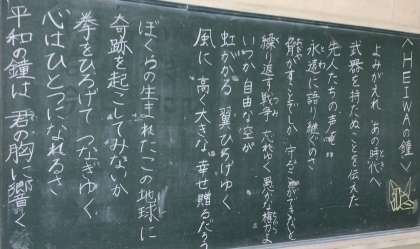 〈HEIWAの鐘〉
よみがえれ あの時代へ
武器を持たぬことを伝えた
先人たちの声を
永遠に語り継ぐのさ
脅かすことでしか 守ることができないと
繰り返す戦争 忘れゆく 愚かな権力よ
いつか自由な空が
虹かかる 翼ひろげゆく
風に 高く大きな 幸せ贈るだろう
ぼくらの生まれたこの地球に
奇跡を起こしてみないか
拳をひろげて つなぎゆく
心はひとつになれるさ
平和の鐘は 君の胸に響く